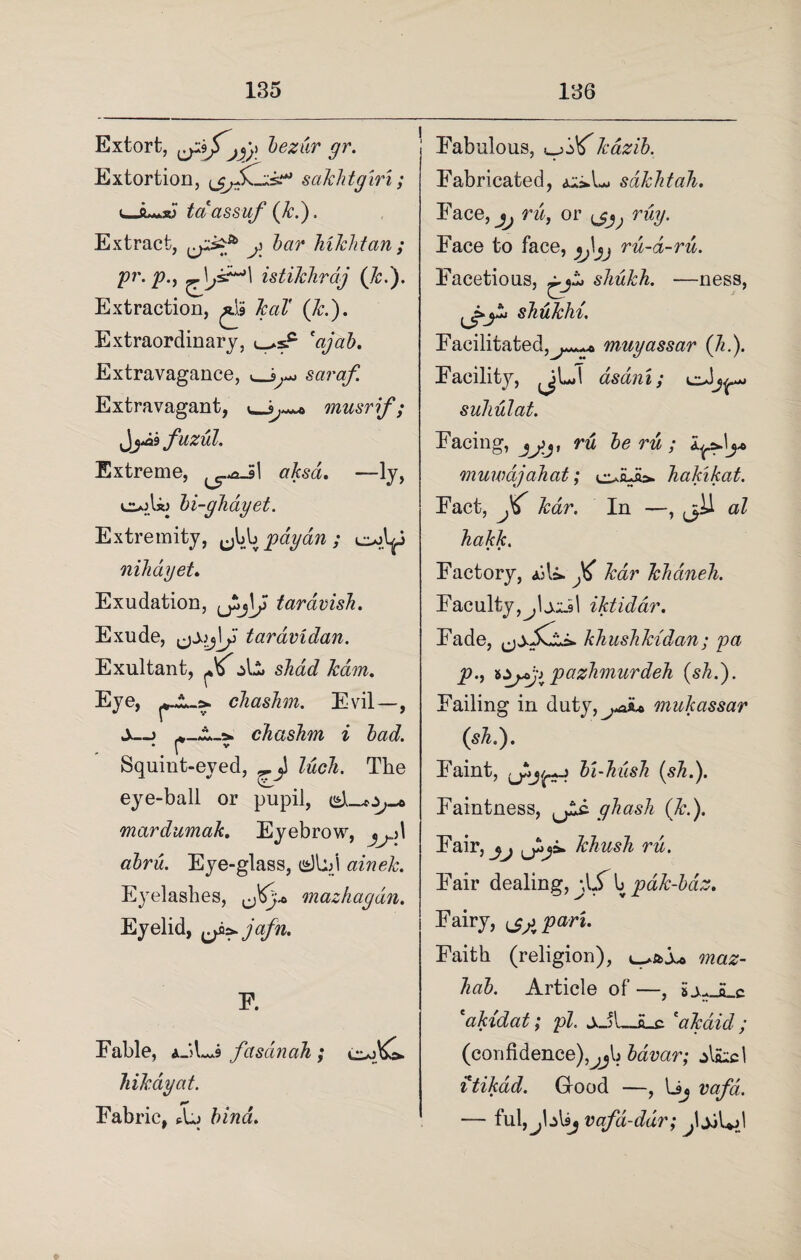 135
Extort, بزور گرفتن bezúr gr.
Extortion, سختگیری sakhtgírí;
تعسف ta'assuf (k.).
Extract, بر هیختن bar híkhtan;
pr. p., استخراج istikhráj (k.).
Extraction, قلع kal' (k.).
Extraordinary, عجب 'ajab.
Extravagance, سرف saraf.
Extravagant, مسرف musrif;
فضول fuzúl.
Extreme, اقصی aksá. —ly,
بغایت bi-gháyet.
Extremity, پایان páyán; نهایت
niháyet.
Exudation, تراوش tarávish.
Exude, تراویدن tarávídan.
Exultant, شاد کام shád kám.
Eye, چشم chashm. Evil—,
چشم بد chashm i bad.
Squint-eyed, لوچ lúch. The
eye-ball or pupil, مردمک
mardumak. Eyebrow, ابرو
abrú. Eye-glass, عینک ainek.
Eyelashes, مژگان mazhagán.
Eyelid, جفن jafn.
F.
Fable, فسانه fasánah; حکایت
hikáyat.
Fabric, بناء biná.
136
Fabulous, کاذب kázib.
Fabricated, ساخته sákhtah.
Face, رو rú, or روی rúy.
Face to face, رو ا رو rú-á-rú.
Facetious, شوخ shúkh. —ness,
شوخی shúkhí.
Facilitated, میسر muyassar (h.).
Facility, آسانی ásání; سهولت
suhúlat.
Facing, رو برو, rú be rú; مواجهة
muwájahat; حقیقت hakíkat.
Fact, کار kár. In —, الحق al
hakk.
Factory, کار خانه kár kháneh.
Faculty, اقتدار iktidár.
Fade, خشکیدن khushkídan; pa
p., پژمرده pazhmurdeh (sh.).
Failing in duty, مقصر mukassar
(sh.).
Faint, بیهوش bí-húsh (sh.).
Faintness, غش ghash (k.).
Fair, خوش رو khush rú.
Fair dealing, پاکباز pák-báz.
Fairy, پری parí.
Faith (religion), مذهب maz-
hab. Article of —, عقیدة
'akídat; pl. عقائد 'akáid;
(confidence), باور bávar; اعتقاد
i'tikád. Good —, وفا vafá.
— ful, وفادار vafá-dár; ایماندار